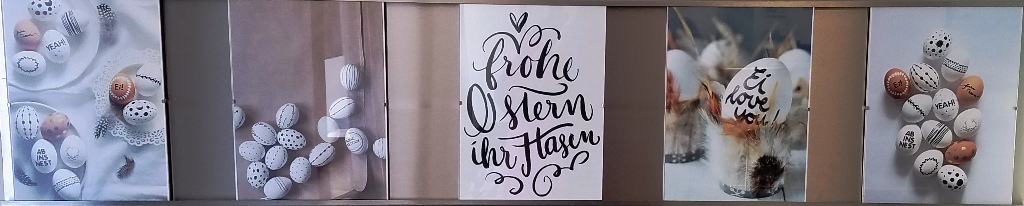 YEAH!
Ei!
AB
INS
NEST
frohe
Ostern
ihr Hasen
Ei
love
you!
Ei!
YEAH!
AB
INS
NEST